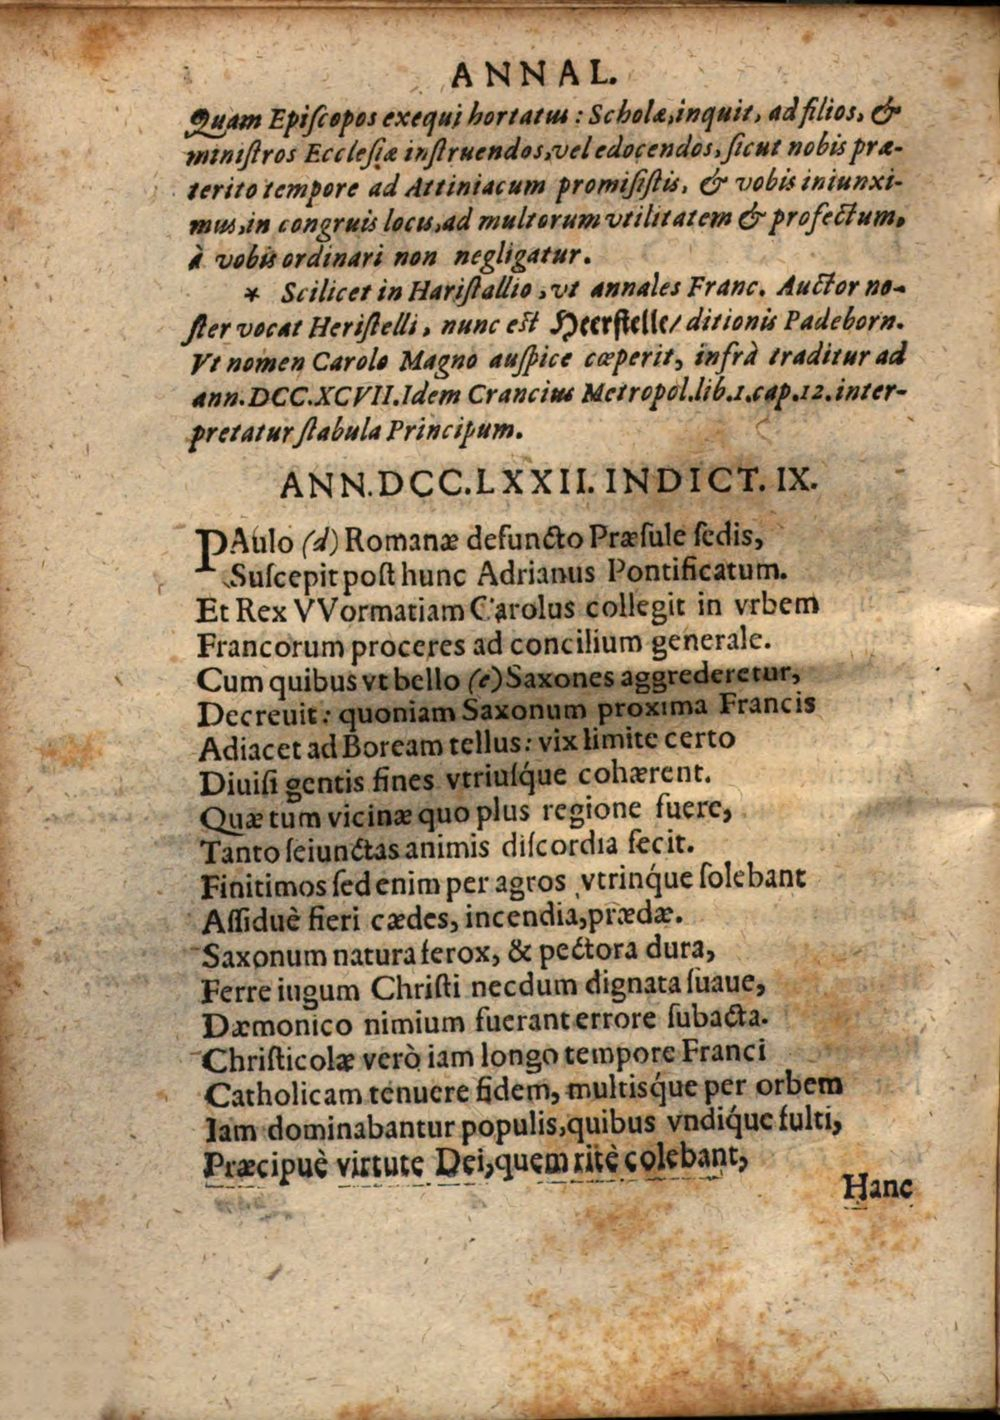 ANNAL.
Quam Episcopos exequi hortatus: Scholæ, inquit, ad filios, &
ministros Ecclesiæ instruendos, vel edocendos, sicut nobis præ-
terito tempore ad Attiniacum promisistis, & vobis iniunxi-
mus, in congruis locis, ad multorum vtilitatem & profectum,
à vobis ordinari non negligatur.
* Scilicet in Haristallio, vt annales Franc. Auctor no-
ster vocat Heristelli, nunc est Heerstelle/ ditionis Padeborn.
Vt nomen Carolo Magno auspice cœperit, infrà traditur ad
ann. DCC.XCVII. Idem Crancius Metropol. lib. 1. cap. 12. inter-
pretatur stabula Principum.
ANN. DCC. LXXII. INDICT. IX.
PAulo (d) Romanæ defuncto Præsule sedis,
Suscepit post hunc Adrianus Pontificatum.
Et Rex VVormatiam Carolus collegit in vrbem
Francorum proceres ad concilium generale.
Cum quibus vt bello (e) Saxones aggrederetur,
Decreuit: quoniam Saxonum proxima Francis
Adiacet ad Boream tellus: vix limite certo
Diuisi gentis fines vtriusq́ue cohærent.
Quæ tum vicinæ quo plus regione fuere,
Tanto seiunctas animis discordia fecit.
Finitimos sed enim per agros vtrinq́ue solebant
Assiduè fieri cædes, incendia, prædæ.
Saxonum natura ferox, & pectora dura,
Ferre iugum Christi necdum dignata suaue,
Dæmonico nimium fuerant errore subacta.
Christicolæ verò iam longo tempore Franci
Catholicam tenuere fidem, multisq́ue per orbem
Iam dominabantur populis, quibus vndiq́ue fulti,
Præcipuè virtute Dei, quem ritè colebant,
Hanc